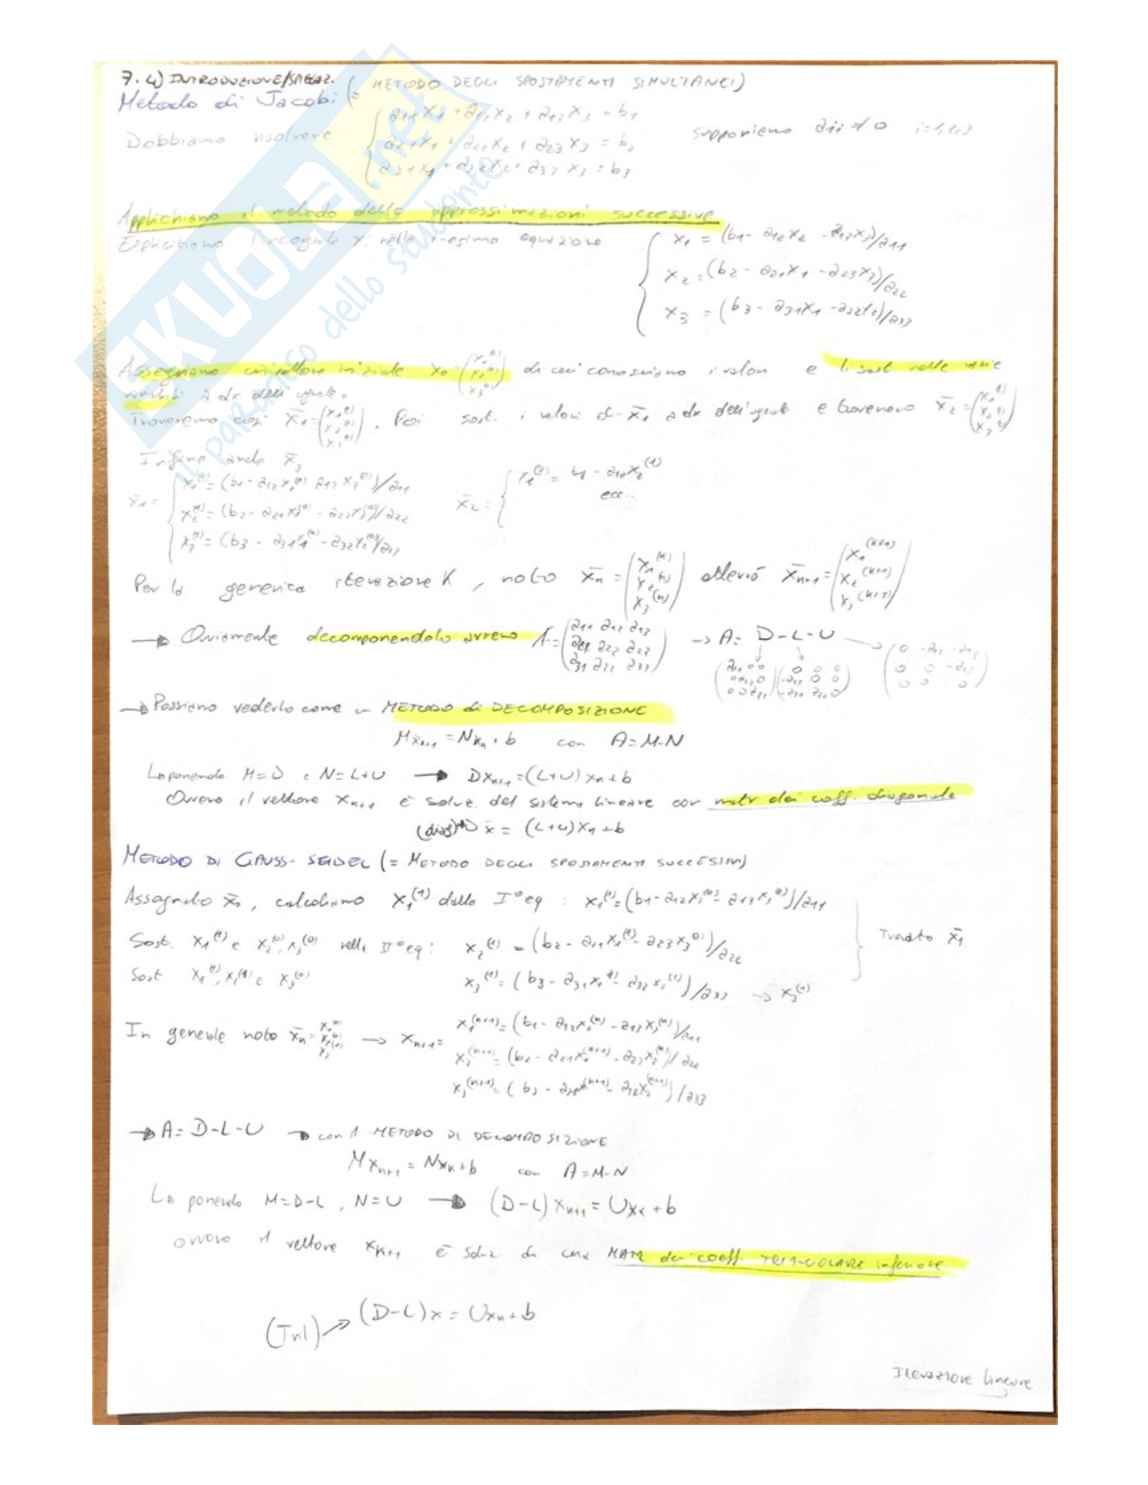 7.4) INTRODUZIONE/SPIEGAZ.
Metodo di Jacobi (= METODO DEGLI SPOSTAMENTI SIMULTANEI)
Dobbiamo risolvere { a11 x1 + a12 x2 + a13 x3 = b1 supponiamo aii ≠ 0 i=1,2,3
a21 x1 + a22 x2 + a23 x3 = b2
a31 x1 + a32 x2 + a33 x3 = b3
Applichiamo il metodo delle approssimazioni successive
Esplicitiamo l'incognita xi nella i-esima equazione { x1 = (b1 - a12 x2 - a13 x3)/a11
x2 = (b2 - a21 x1 - a23 x3)/a22
x3 = (b3 - a31 x1 - a32 x2)/a33
Assegniamo un vettore iniziale x0 = (x1(0) x2(0) x3(0)) di cui conosciamo i valori e li sost. nelle varie
a dx dell'uguale.
Troveremo così x1 = (x1(1) x2(1) x3(1)). Poi sost. i valori di x1 a dx dell'uguale e troveremo x2 = (x1(2) x2(2) x3(2))
Infine anche x3
x1 = { x1(1) = (b1 - a12 x2(0) - a13 x3(0))/a11 x2 = { x1(2) = b1 - a12 x2(1)
x2(1) = (b2 - a21 x1(0) - a23 x3(0))/a22 ecc..
x3(1) = (b3 - a31 x1(0) - a32 x2(0))/a33
Per la generica iterazione K, noto xn = (x1(n) x2(n) x3(n)) otterrò xn+1 = (x1(k+1) x2(k+1) x3(k+1))
→ Ovviamente decomponendola avremo A = (a11 a12 a13 a21 a22 a23 a31 a32 a33) → A = D-L-U
→ Possiamo vederlo come un METODO di DECOMPOSIZIONE
M xn+1 = N xn + b con A = M-N
La ponendo M=D e N=L+U → D xn+1 = (L+U) xn + b
Ovvero il vettore xn+1 è soluz. del sistema lineare con matr dei coff. diagonale
(diag) D x = (L+U) xn + b
METODO DI GAUSS-SEIDEL (= METODO DEGLI SPOSTAMENTI SUCCESSIVI)
Assegnato x0, calcoliamo x1(1) dalla I° eq : x1(1) = (b1 - a12 x2(0) - a13 x3(0))/a11
Sost. x1(1) e x2(0), x3(0) nella II° eq : x2(1) = (b2 - a21 x1(1) - a23 x3(0))/a22 } Trovato x1
Sost x1(1), x2(1) e x3(0) x3(1) = (b3 - a31 x1(1) - a32 x2(1))/a33 → x3(1)
In generale noto xn = (x1(n) x2(n) x3(n)) → xn+1 = x1(n+1) = (b1 - a12 x2(n) - a13 x3(n))/a11
x2(n+1) = (b2 - a21 x1(n+1) - a23 x3(n))/a22
x3(n+1) = (b3 - a31 x1(n+1) - a32 x2(n+1))/a33
→ A = D-L-U → con il METODO DI DECOMPOSIZIONE
M xn+1 = N xn + b con A = M-N
La ponendo M=D-L, N=U → (D-L) xn+1 = U xk + b
ovvero il vettore xk+1 è soluz di una MATR dei coeff. TRIANGOLARE inferiore
(Tril) → (D-L) x = U xn + b
Iterazione lineare
SKUOLA.net
il paradiso dello studente